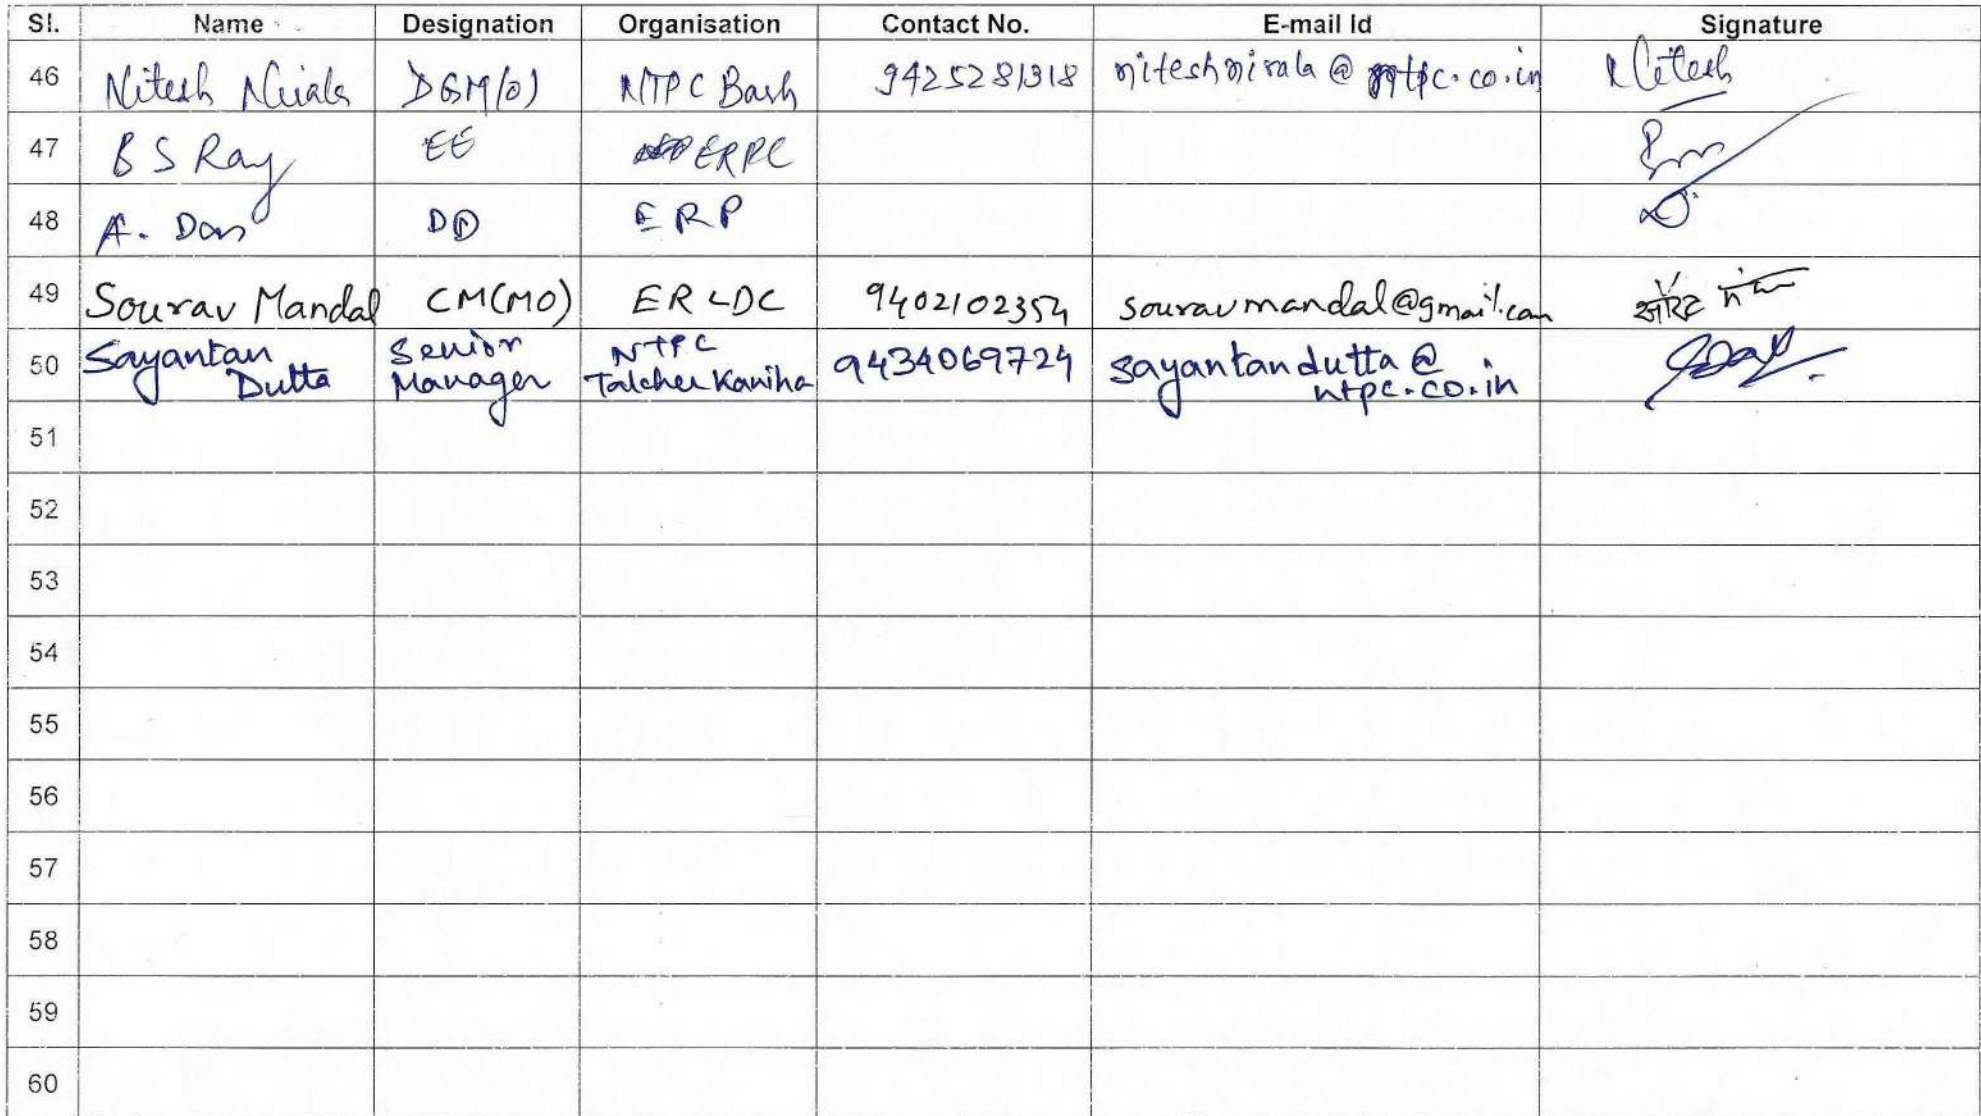 Sl. Name Designation Organisation Contact No. E-mail Id Signature
46 Nitesh Nirala DGM(O) NTPC Barh 9425281318 niteshnirala@ntpc.co.in Nitesh
47 B S Ray EE ERPC
48 A. Das DD ERP
49 Sourav Mandal CM(MO) ERLDC 9402102354 souravmandal@gmail.com
50 Sayantan Senior NTPC 9434069724 sayantandutta@
Dutta Manager Talcher Kaniha ntpc.co.in
51
52
53
54
55
56
57
58
59
60